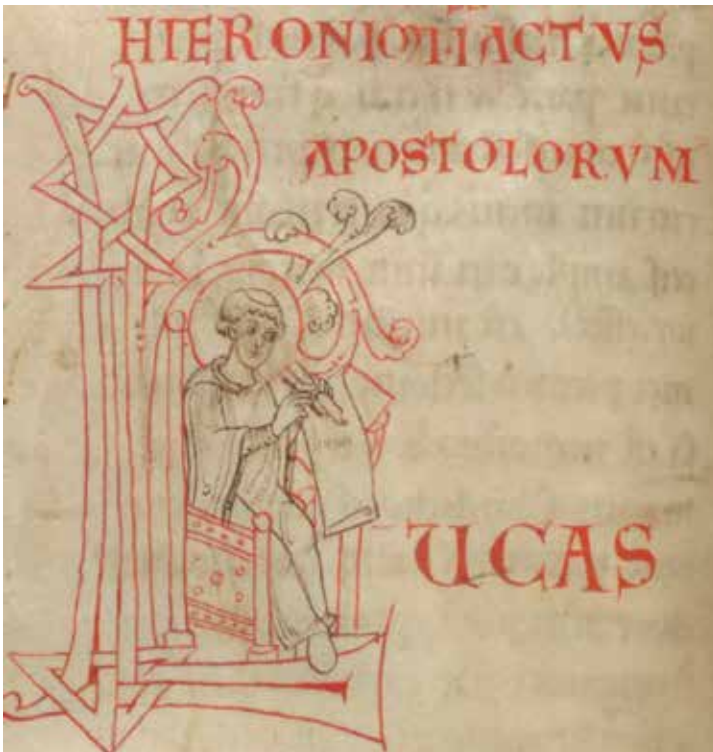 HIERONIMI ACTVS
APOSTOLORVM
LUCAS